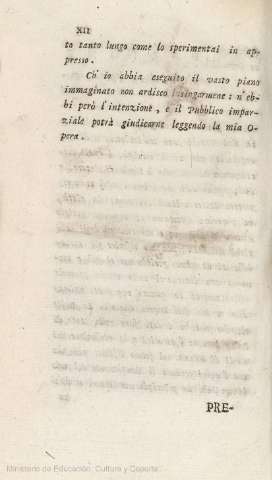 XII
to tanto lungo come lo sperimentai in ap-
presso.
Ch' io abbia eseguito il vasto piano
immaginato non ardisco lusingarmene: n'eb-
bi però l'intenzione, e il Pubblico impar-
ziale potrà giudicarne leggendo la mia O-
pera.
PRE-
Ministerio de Educación, Cultura y Deporte